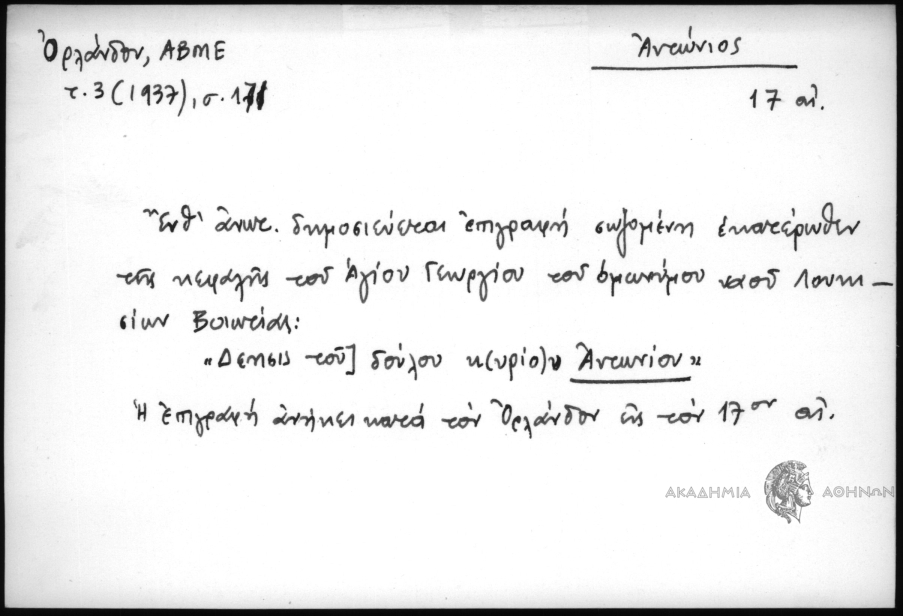 Ὀρλάνδου, ΑΒΜΕ
τ. 3 (1937), σ. 171
Ἀντώνιος
17 αἰ.
Ἔνθ' ἀνωτ. δημοσιεύεται ἐπιγραφή σωζομένη ἑκατέρωθεν
τῆς κεφαλῆς τοῦ Ἁγίου Γεωργίου τοῦ ὁμωνύμου ναοῦ Λουκι–
σίων Βοιωτίας:
«Δέησις τοῦ] δούλου κ(υρίο)υ Ἀντωνίου»
Ἡ ἐπιγραφή ἀνήκει κατά τόν Ὀρλάνδον εἰς τόν 17ον αἰ.
ΑΚΑΔΗΜΙΑ ΑΘΗΝΩΝ